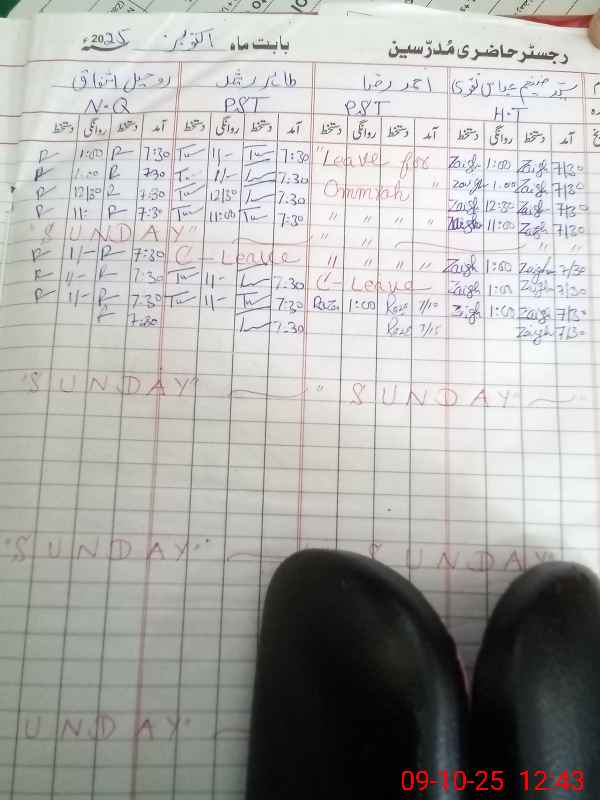 رجسٹر حاضری مُدرّسین بابت ماہ اکتوبر 2025ء
سید ضیغم عباس نقوی احمد رضا طاہر رشد روحیل اشفاق
H.T PST PST N.Q
آمد دستخط روانگی دستخط آمد دستخط روانگی دستخط آمد دستخط روانگی دستخط آمد دستخط روانگی دستخط
R 1:00 R 7:30 1/- 7:30 "Leave for Zaigh 1:00 Zaigh 7/30
R 1:00 R 7:30 1/- 7:30 Ommrah " Zaigh 1:00 Zaigh 7/30
R 12/30 R 7:30 12/30 7:30 " " " " Zaigh 12:30 Zaigh 7/30
R 11: R 7:30 11:00 7:30 " " Zaigh 11:00 Zaigh 7/30
"SUNDAY" " " " "
R 1/- R 7:30 C-Leave " " " " Zaigh 1:00 Zaigh 7/30
R 1/- R 7:30 11/- 7:30 C-Leave Zaigh 1:00 Zaigh 7/30
R 1/- R 7:30 11/- 7:30 Raza 1:00 Raza Zaigh 1:00 Zaigh 7/30
R 7:30 7:30 Raza 7/15 Zaigh 7/30
"SUNDAY" " SUNDAY"
"SUNDAY" SUNDAY"
UNDAY"
09-10-25 12:43